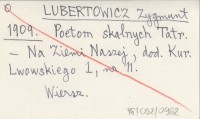 LUBERTOWICZ Zygmunt
1909. Poetom skalnych Tatr.
– Na Ziemi Naszej, dod. Kur.
Lwowskiego 1, nr 11.
Wiersz.